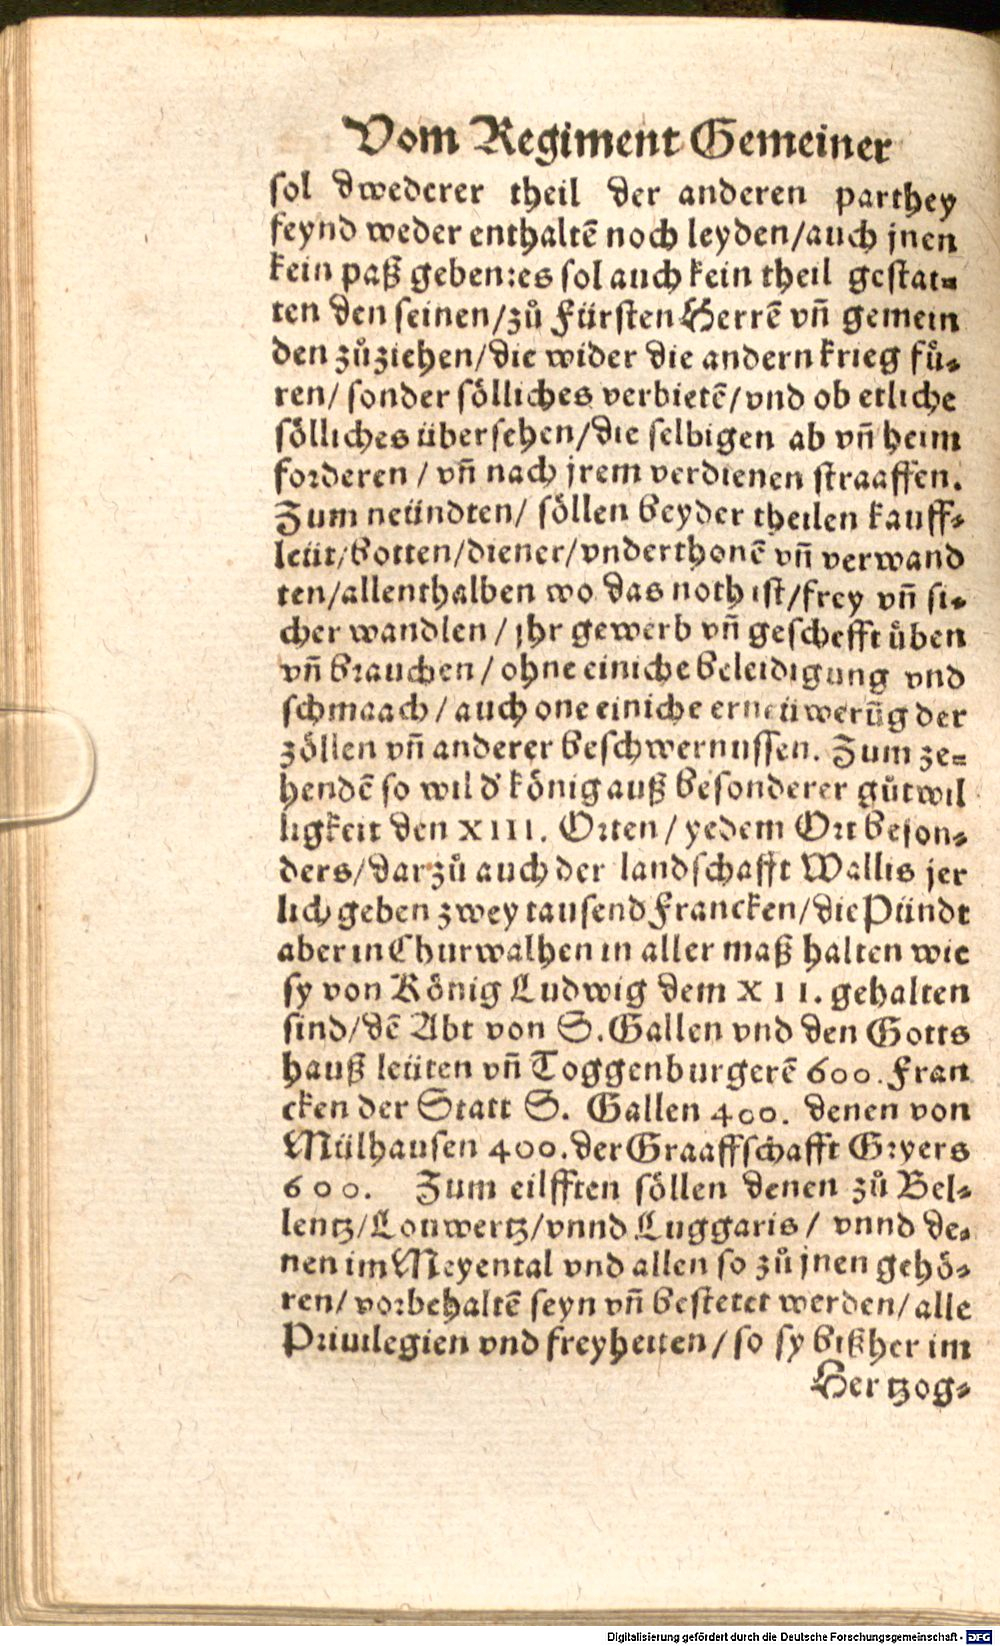 Vom Regiment Gemeiner
sol dwederer theil der anderen parthey
feynd weder enthaltẽ noch leyden/auch jnen
kein paß geben:es sol auch kein theil gestat-
ten den seinen/zů Fürsten Herrẽ vñ gemein
den zůziehen/die wider die andern krieg fů-
ren/ sonder sölliches verbietẽ/vnd ob etliche
sölliches übersehen/die selbigen ab vñ heim
forderen / vñ nach jrem verdienen straaffen.
Zum neündten/ söllen beyder theilen kauff-
leüt/botten/diener/vnderthonẽ vñ verwand
ten/allenthalben wo das noth ist/frey vñ si-
cher wandlen / jhr gewerb vñ geschefft üben
vñ brauchen / ohne einiche beleidigung vnd
schmaach / auch one einiche erneüwerũg der
zöllen vñ anderer beschwernussen. Zum ze-
hendẽ so wil d' könig auß besonderer gůtwil
ligkeit den XIII. Orten / yedem Ort beson-
ders/darzů auch der landschafft Wallis jer
lich geben zwey tausend Francken/die Pündt
aber in Churwalhen in aller maß halten wie
sy von König Ludwig dem XII. gehalten
sind/dẽ Abt von S.Gallen vnd den Gotts
hauß leüten vñ Toggenburgerẽ 600. Fran
cken der Statt S. Gallen 400. denen von
Mülhausen 400. der Graaffschafft Gryers
600. Zum eilfften söllen denen zů Bel-
lentz/Louwertz/vnnd Luggaris / vnnd de-
nen im Meyental vnd allen so zů jnen gehö-
ren/ vorbehaltẽ seyn vñ bestetet werden/ alle
Priuilegien vnd freyheiten / so sy bißher im
Hertzog-
Digitalisierung gefördert durch die Deutsche Forschungsgemeinschaft - DFG